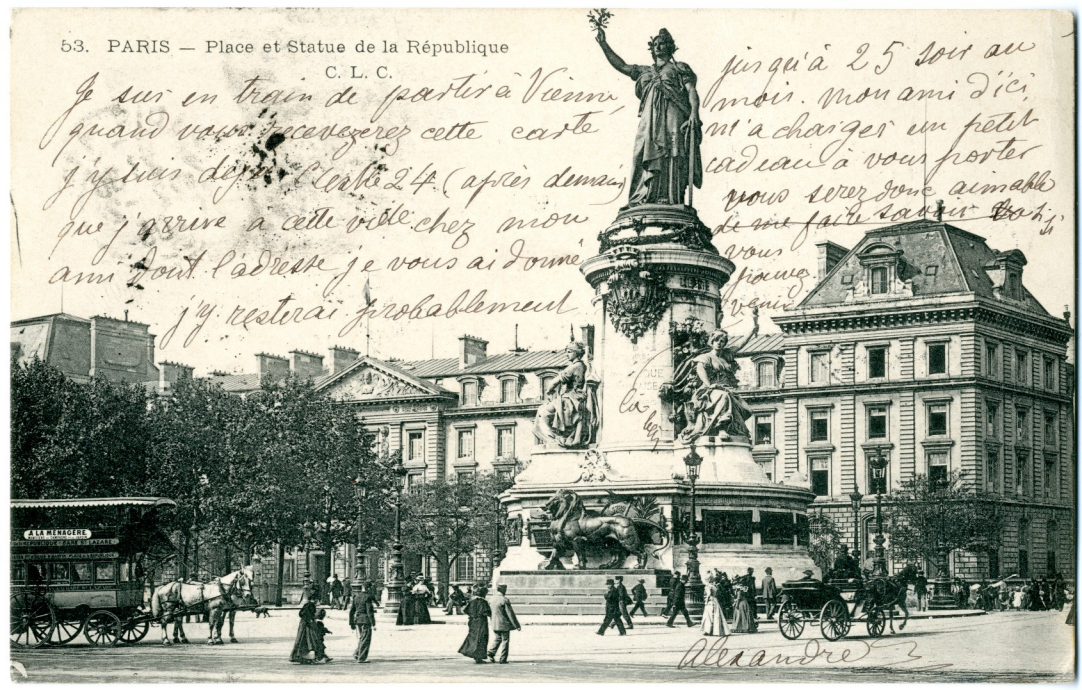 53. PARIS — Place et Statue de la République
C. L. C.
Je suis en train de partir à Vienne,
quand vous recevezerez cette carte
j'y suis déjà. C'est le 24 (après demain)
que j'arrive a cette ville chez mon
ami dont l'adresse je vous ai donné
j'y resterai probablement
jusqu'à 25 soir au
mois. mon ami d'ici
m'a charges un petit
cadeau à vous porter
vous serez donc aimable
de me faire savoir si
vous
pouvez
venir
là
A LA MÉNAGÈRE
Alexandre